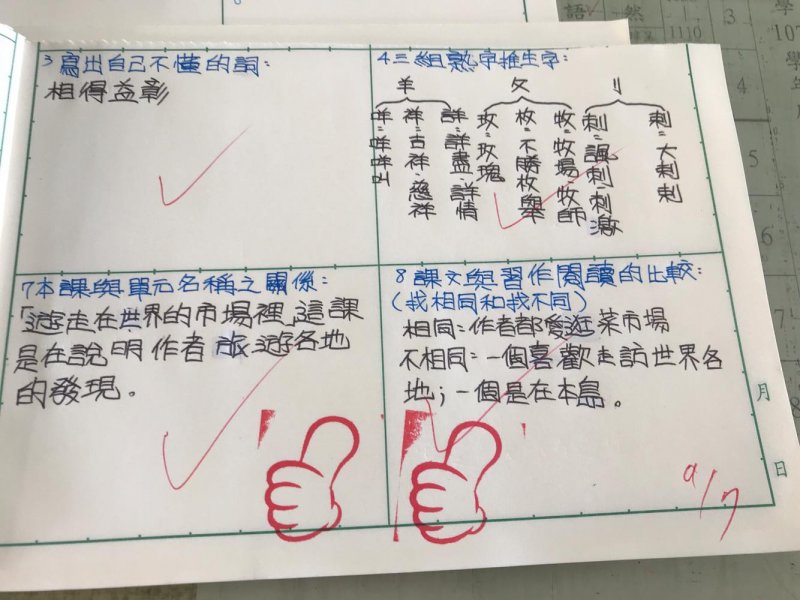 3 寫出自己不懂的詞:
相得益彰
4 三組熟字推生字:
羊
詳:詳盡、詳情
祥:吉祥、慈祥
咩:咩咩叫
攵
牧:牧場、牧師
枚:不勝枚舉
玫:玫瑰
刂
刺:大剌剌
刺:諷刺、刺激
7 本課與單元名稱之關係:
「遊走在世界的市場裡」這課
是在說明作者旅遊各地
的發現。
8 課文與習作閱讀的比較:
(找相同和找不同)
相同:作者都愛逛菜市場
不相同:一個喜歡走訪世界各
地;一個是在本島。
月
日
9/7
語
然
3
1110
4
5
6
7
學
年